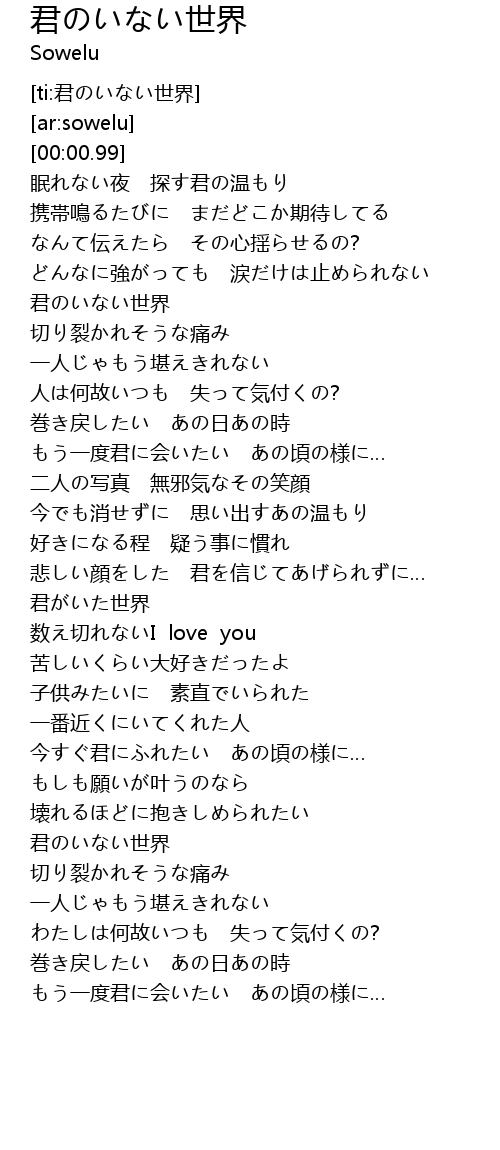 君のいない世界
Sowelu
[ti:君のいない世界]
[ar:sowelu]
[00:00.99]
眠れない夜　探す君の温もり
携帯鳴るたびに　まだどこか期待してる
なんて伝えたら　その心揺らせるの?
どんなに強がっても　涙だけは止められない
君のいない世界
切り裂かれそうな痛み
一人じゃもう堪えきれない
人は何故いつも　失って気付くの?
巻き戻したい　あの日あの時
もう一度君に会いたい　あの頃の様に...
二人の写真　無邪気なその笑顔
今でも消せずに　思い出すあの温もり
好きになる程　疑う事に慣れ
悲しい顔をした　君を信じてあげられずに...
君がいた世界
数え切れないI love you
苦しいくらい大好きだったよ
子供みたいに　素直でいられた
一番近くにいてくれた人
今すぐ君にふれたい　あの頃の様に...
もしも願いが叶うのなら
壊れるほどに抱きしめられたい
君のいない世界
切り裂かれそうな痛み
一人じゃもう堪えきれない
わたしは何故いつも　失って気付くの?
巻き戻したい　あの日あの時
もう一度君に会いたい　あの頃の様に...